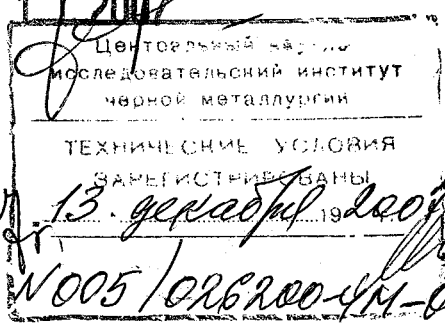 Центральный научно
исследовательский институт
черной металлургии
ТЕХНИЧЕСКИЕ УСЛОВИЯ
ЗАРЕГИСТРИРОВАНЫ
13. декабря 19
N 005/026200-